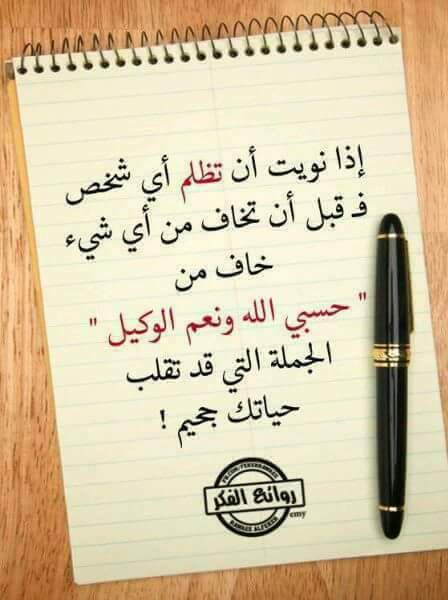 إذا نويت أن تظلم أي شخص
فـ قبل أن تخاف من أي شيء
خاف من
" حسبي الله ونعم الوكيل "
الجملة التي قد تقلب
حياتك جحيم !
روائع الفكر
emy